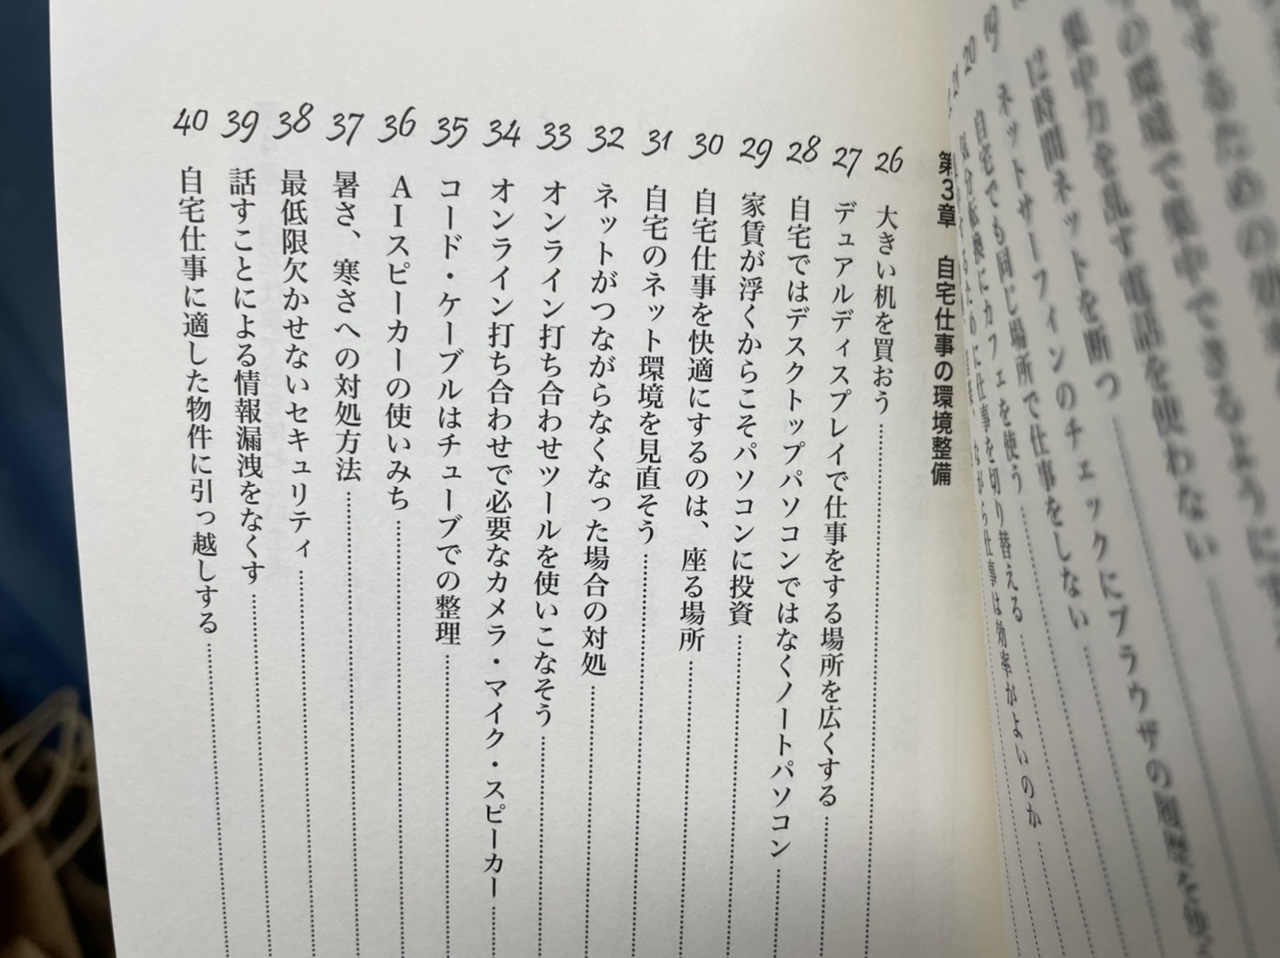 集中力を乱す電話を使わない
12時間ネットを断つ
ネットサーフィンのチェックにブラウザの履歴を
19
自宅でも同じ場所で仕事をしない
20
気分転換にカフェを使う
21
第3章 自宅仕事の環境整備
26 大きい机を買おう
27 デュアルディスプレイで仕事をする場所を広くする
28 自宅ではデスクトップパソコンではなくノートパソコン
29 家賃が浮くからこそパソコンに投資
30 自宅仕事を快適にするのは、座る場所
31 自宅のネット環境を見直そう
32 ネットがつながらなくなった場合の対処
33 オンライン打ち合わせツールを使いこなそう
34 オンライン打ち合わせで必要なカメラ・マイク・スピーカー
35 コード・ケーブルはチューブでの整理
36 AIスピーカーの使いみち
37 暑さ、寒さへの対処方法
38 最低限欠かせないセキュリティ
39 話すことによる情報漏洩をなくす
40 自宅仕事に適した物件に引っ越しする